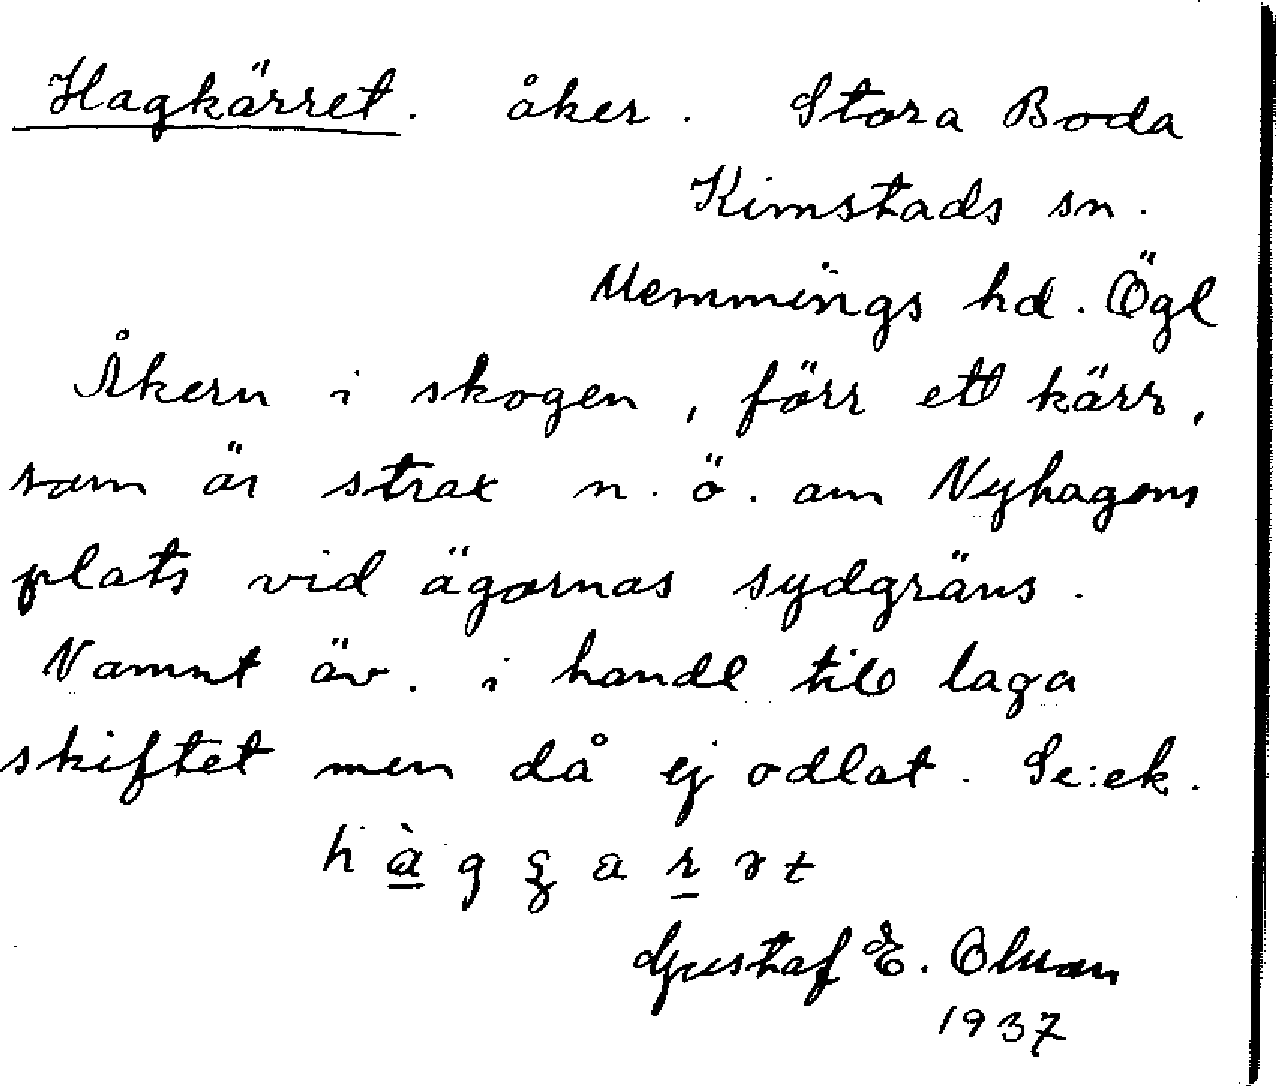 Hagkärret. åker. Stora Boda
Kimstads sn.
Memmings hd. Ögl
Åkern i skogen, förr ett kärr,
som är strax n. ö. om Nyhagens
plats vid ägornas sydgräns.
Namnt äv. i handl till laga
skiftet men då ej odlat. Se: ek.
Gustaf E. Olman
1937